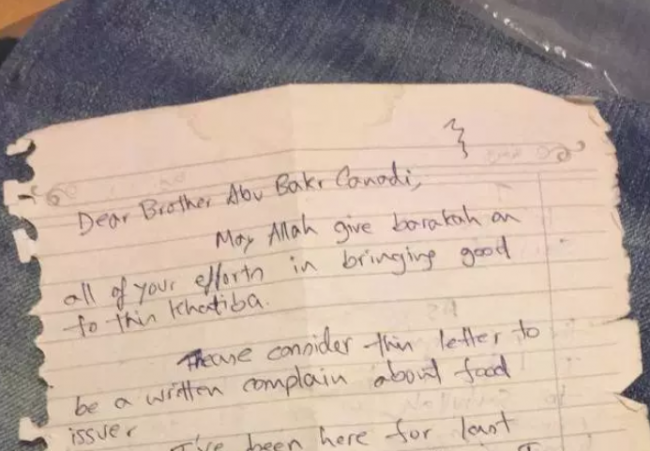 Dear Brother Abu Bakr Canadi,
May Allah give barakah on
all of your efforts in bringing good
to this Khatiba.
Please consider this letter to
be a written complain about food
issues
I've been here for last